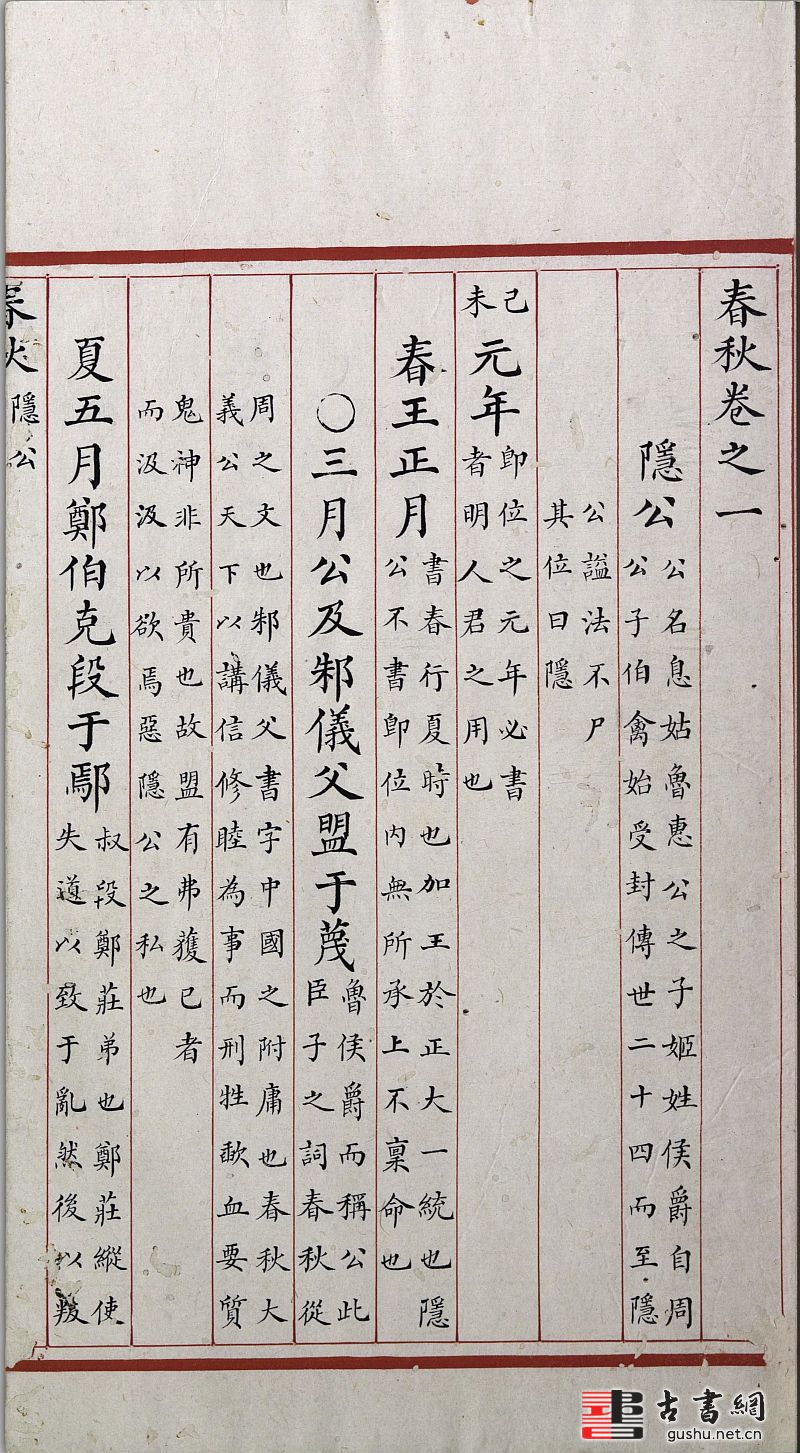 春秋卷之一
隱公公名息姑魯惠公之子姬姓侯爵自周
公子伯禽始受封傳世二十四而至隱
公謚法不尸
其位曰隱
己未元年即位之元年必書
者明人君之用也
春王正月書春行夏時也加王於正大一統也隱
公不書即位内無所承上不稟命也
○三月公及邾儀父盟于蔑魯侯爵而稱公此
臣子之詞春秋從
周之文也邾儀父書字中國之附庸也春秋大
義公天下以講信修睦為事而刑牲歃血要質
鬼神非所貴也故盟有弗獲已者
而汲汲以欲焉惡隱公之私也
夏五月鄭伯克段于鄢叔段鄭莊弟也鄭莊縱使
失道以致于亂然後以叛
春秋 隱公
古書網
gushu.net.cn